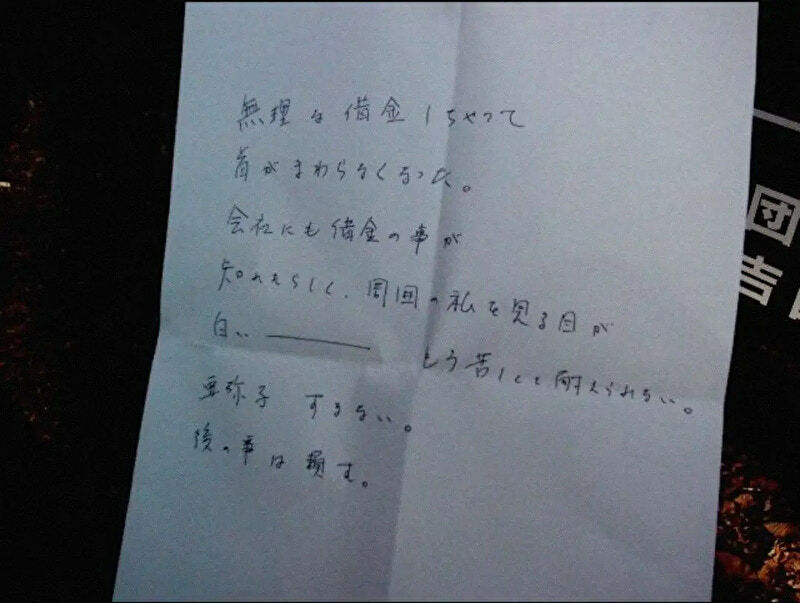 無理な借金しちゃって
首がまわらなくなった。
会社にも借金の事が
知れたらしく、周囲の私を見る目が
白い――― もう苦しくて耐えられない。
亜弥子 すまない。
後の事は頼む。
団
吉